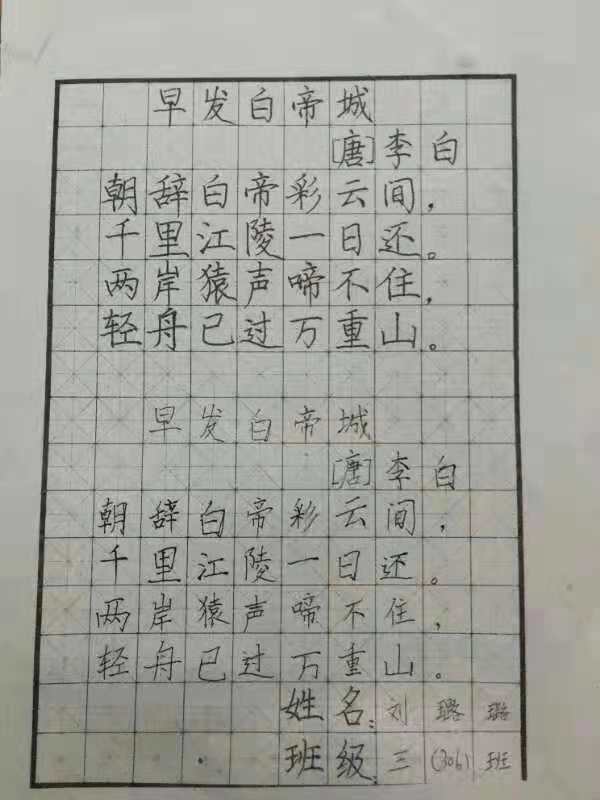 早发白帝城
[唐]李白
朝辞白帝彩云间，
千里江陵一日还。
两岸猿声啼不住，
轻舟已过万重山。
早发白帝城
[唐]李白
朝辞白帝彩云间，
千里江陵一日还。
两岸猿声啼不住，
轻舟已过万重山。
姓名：刘璐璐
班级：三(306)班